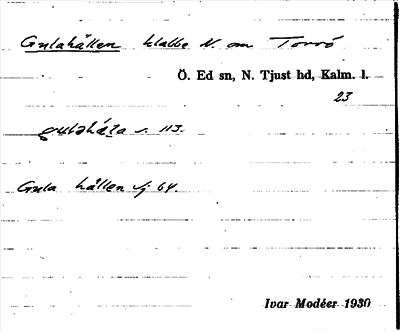 Gulahällen klabbe N. om Torrö
Ö. Ed sn, N. Tjust hd, Kalm. l.
23
s. 113.
Gula hällen sj 64.
Ivar Modéer 1930